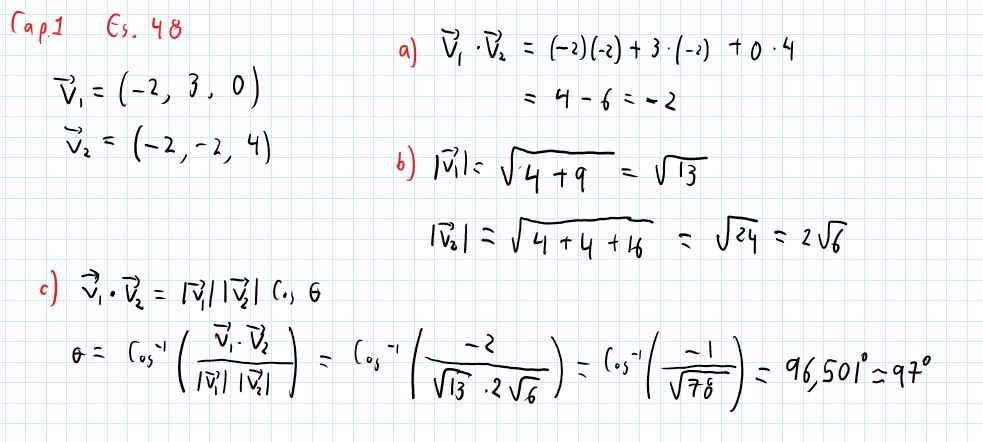 Cap.1 Es. 48
V⃗₁ = (-2, 3, 0)
V⃗₂ = (-2, -2, 4)
a) V⃗₁ · V⃗₂ = (-2)(-2) + 3·(-2) + 0·4
= 4 - 6 = -2
b) |V⃗₁| = √(4 + 9) = √13
|V⃗₂| = √(4 + 4 + 16) = √24 = 2√6
c) V⃗₁ · V⃗₂ = |V⃗₁| |V⃗₂| Cos θ
θ = Cos⁻¹ (V⃗₁ · V⃗₂ / |V⃗₁| |V⃗₂|) = Cos⁻¹ (-2 / √13 · 2√6) = Cos⁻¹ (-1 / √78) = 96,501° ≃ 97°